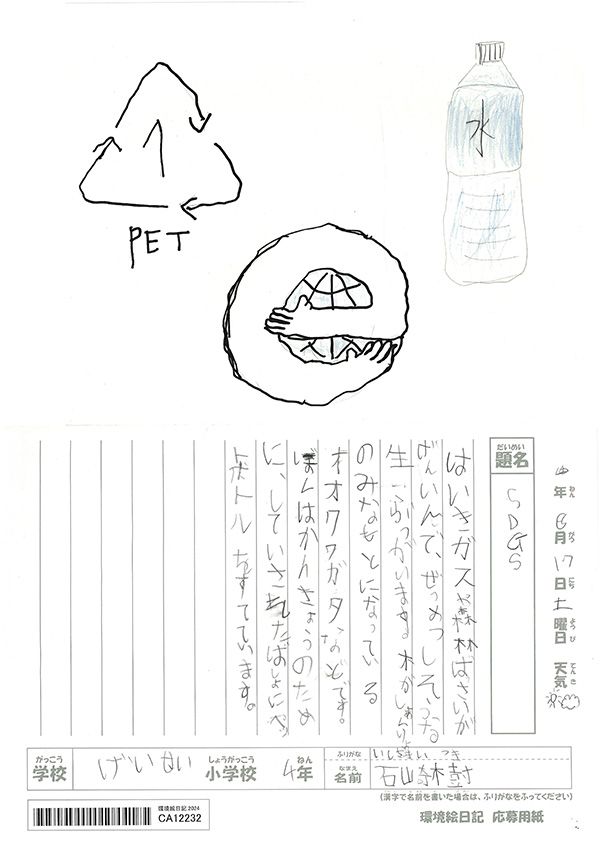 水
1
PET
だいめい
題名
SDGS
年 ねん
6月 がつ 17日 にち 土曜日 ようび 天気 てんき
はいきガスや森林ばさいが
げんいんで、ぜつめつしそうなる
生
のみなもとになっている
オオクワガタなどです。
ぼくはかんきょうのため
に、していされたばしょにペッ
トボトルをすてています。
がっこう
学校
げいない
しょうがっこう
小学校
4年 ねん
ふりがな
なまえ
名前
石山
(漢字で名前を書いた場合は、ふりがなをふってください)
環境絵日記 2024
CA12232
環境絵日記 応募用紙